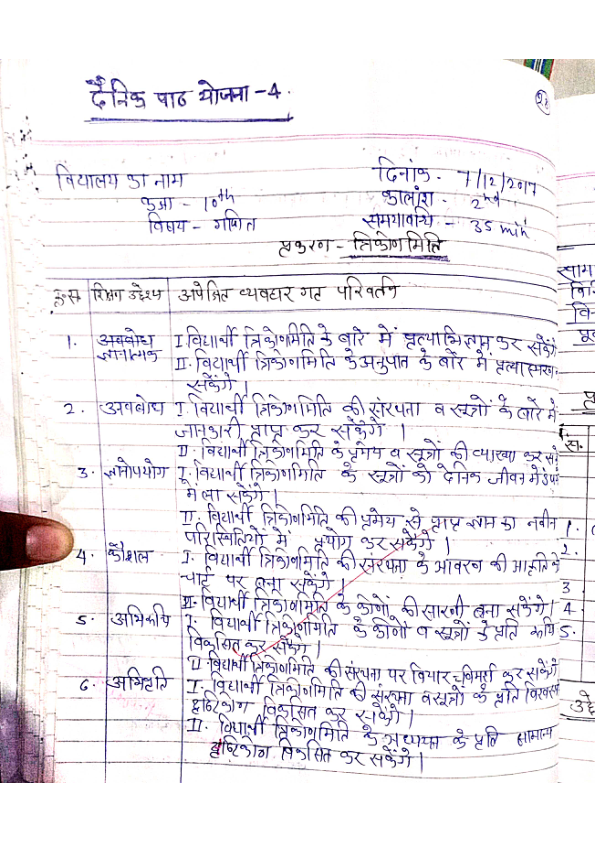 दैनिक पाठ योजना -4.
28
विद्यालय का नाम
दिनांक- 7/12/2017
कक्षा - 10th
कालांश- 2nd
विषय - गणित
समयावधि - 35 min
प्रकरण - त्रिकोणमिति
क्र.स. शिक्षण उद्देश्य अपेक्षित व्यवहार गत परिवर्तन
1. अवबोध I विद्यार्थी त्रिकोणमिति के बारे में प्रत्याभिज्ञान कर सकेंगे
ज्ञानात्मक II. विद्यार्थी त्रिकोणमिति के अनुपात के बारे में
सकेंगे।
2. अवबोध I. विद्यार्थी त्रिकोणमिति की संरचना व सूत्रों के बारे में
जानकारी प्राप्त कर सकेंगे ।
II. विद्यार्थी त्रिकोणमिति के प्रमेय व सूत्रों की व्याख्या कर
3. ज्ञानोपयोग I. विद्यार्थी त्रिकोणमिति के सूत्रों को दैनिक जीवन में
में ला सकेंगे।
II. विद्यार्थी त्रिकोणमिति की प्रमेय से प्राप्त ज्ञान का नवीन
परिस्थितियों में प्रयोग कर सकेंगे।
4. कौशल I. विद्यार्थी त्रिकोणमिति की संरचना के आवरण की आकृति के
चार्ट पर बना सकेंगे।
II. विद्यार्थी त्रिकोणमिति के कोणों की सारणी बना सकेंगे।
5. अभिरूचि I. विद्यार्थी त्रिकोणमिति के कोणों व सूत्रों के प्रति रूचि
विकसित कर सकेंगे।
II. विद्यार्थी त्रिकोणमिति की संरचना पर विचार-विमर्श कर सकेंगे
6. अभिवृति I. विद्यार्थी त्रिकोणमिति की संरचना व सूत्रों के प्रति
दृष्टिकोण विकसित कर सकेंगे।
II. विद्यार्थी त्रिकोणमिति के अध्ययन के प्रति सामान्य
दृष्टिकोण विकसित कर सकेंगे।
1.
2.
3
4.
5.